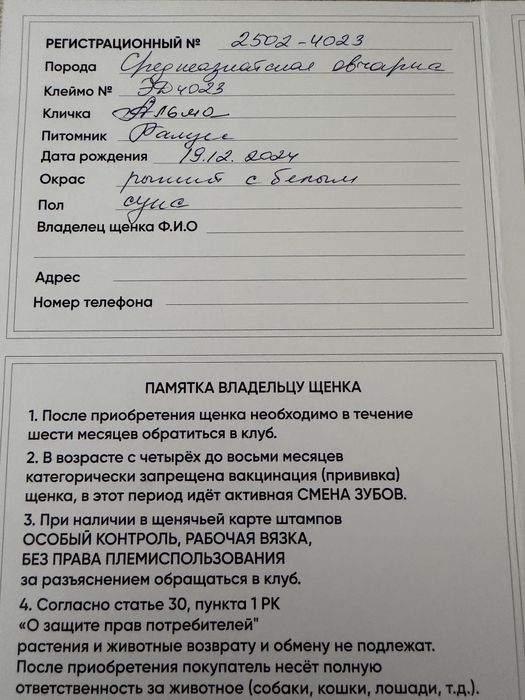 РЕГИСТРАЦИОННЫЙ № 2502-4023
Порода Среднеазиатская овчарка
Клеймо № 4023
Кличка Альма
Питомник
Дата рождения 19.12.2024
Окрас рыжий с белым
Пол сука
Владелец щенка Ф.И.О
Адрес
Номер телефона
ПАМЯТКА ВЛАДЕЛЬЦУ ЩЕНКА
1. После приобретения щенка необходимо в течение
шести месяцев обратиться в клуб.
2. В возрасте с четырёх до восьми месяцев
категорически запрещена вакцинация (прививка)
щенка, в этот период идёт активная СМЕНА ЗУБОВ.
3. При наличии в щенячьей карте штампов
ОСОБЫЙ КОНТРОЛЬ, РАБОЧАЯ ВЯЗКА,
БЕЗ ПРАВА ПЛЕМИСПОЛЬЗОВАНИЯ
за разъяснением обращаться в клуб.
4. Согласно статье 30, пункта 1 РК
«О защите прав потребителей"
растения и животные возврату и обмену не подлежат.
После приобретения покупатель несёт полную
ответственность за животное (собаки, кошки, лошади, т.д.).